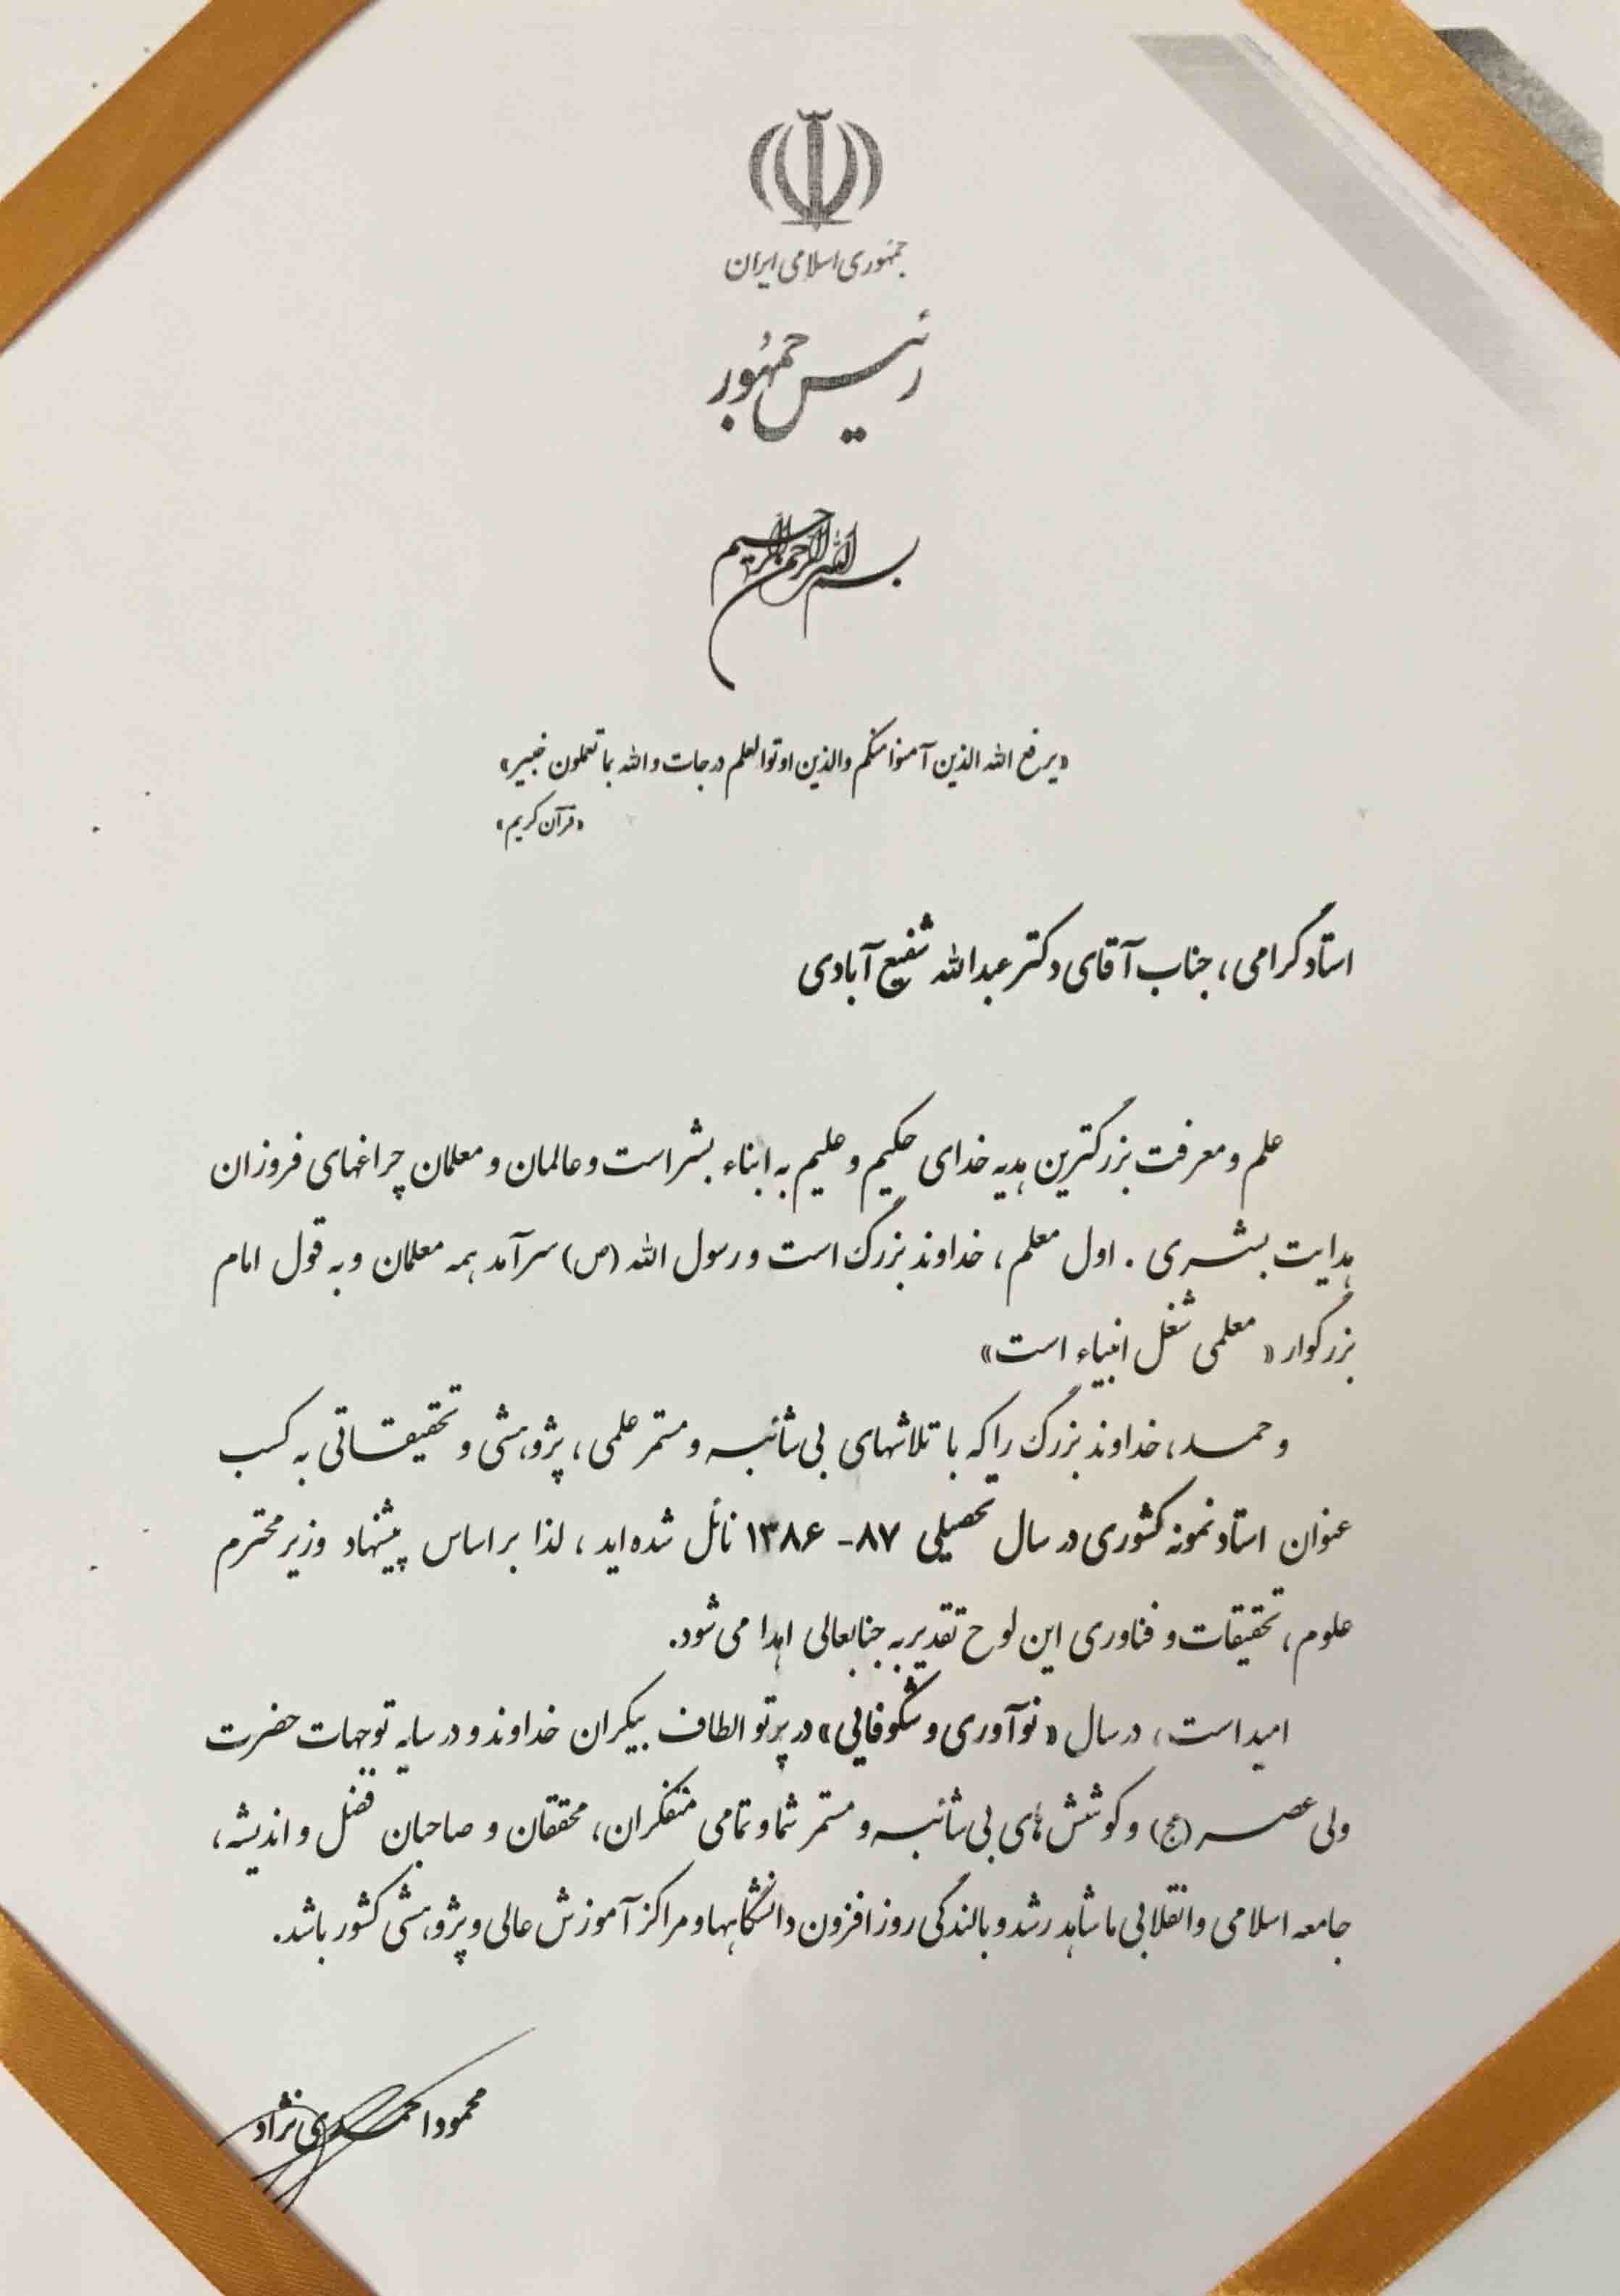 جمهوری اسلامی ایران
رئیس جمهور
بسم الله الرحمن الرحیم
«یرفع الله الذین آمنوا منکم والذین اوتوا العلم درجات و الله بما تعملون خبیر»
«قرآن کریم»
استاد گرامی، جناب آقای دکتر عبدالله شفیع آبادی
علم و معرفت بزرگترین هدیه خدای حکیم و علیم به ابناء بشر است و عالمان و معلمان چراغهای فروزان
هدایت بشری . اول معلم، خداوند بزرگ است و رسول الله (ص) سرآمد همه معلمان و به قول امام
بزرگوار « معلمی شغل انبیاء است»
و حمد، خداوند بزرگ را که با تلاشهای بی شائبه و مستمر علمی، پژوهشی و تحقیقاتی به کسب
عنوان استاد نمونه کشوری در سال تحصیلی ۸۷- ۱۳۸۶ نائل شده اید، لذا بر اساس پیشنهاد وزیر محترم
علوم، تحقیقات و فناوری این لوح تقدیر به جنابعالی اهدا می شود.
امید است، در سال «نوآوری و شکوفایی» در پرتو الطاف بیکران خداوند و در سایه توجهات حضرت
ولی عصر (عج) و کوشش های بی شائبه و مستمر شما و تمامی متفکران، محققان و صاحبان فضل و اندیشه،
جامعه اسلامی و انقلابی ما شاهد رشد و بالندگی روز افزون دانشگاهها و مراکز آموزش عالی و پژوهشی کشور باشد.
محمود احمدی نژاد